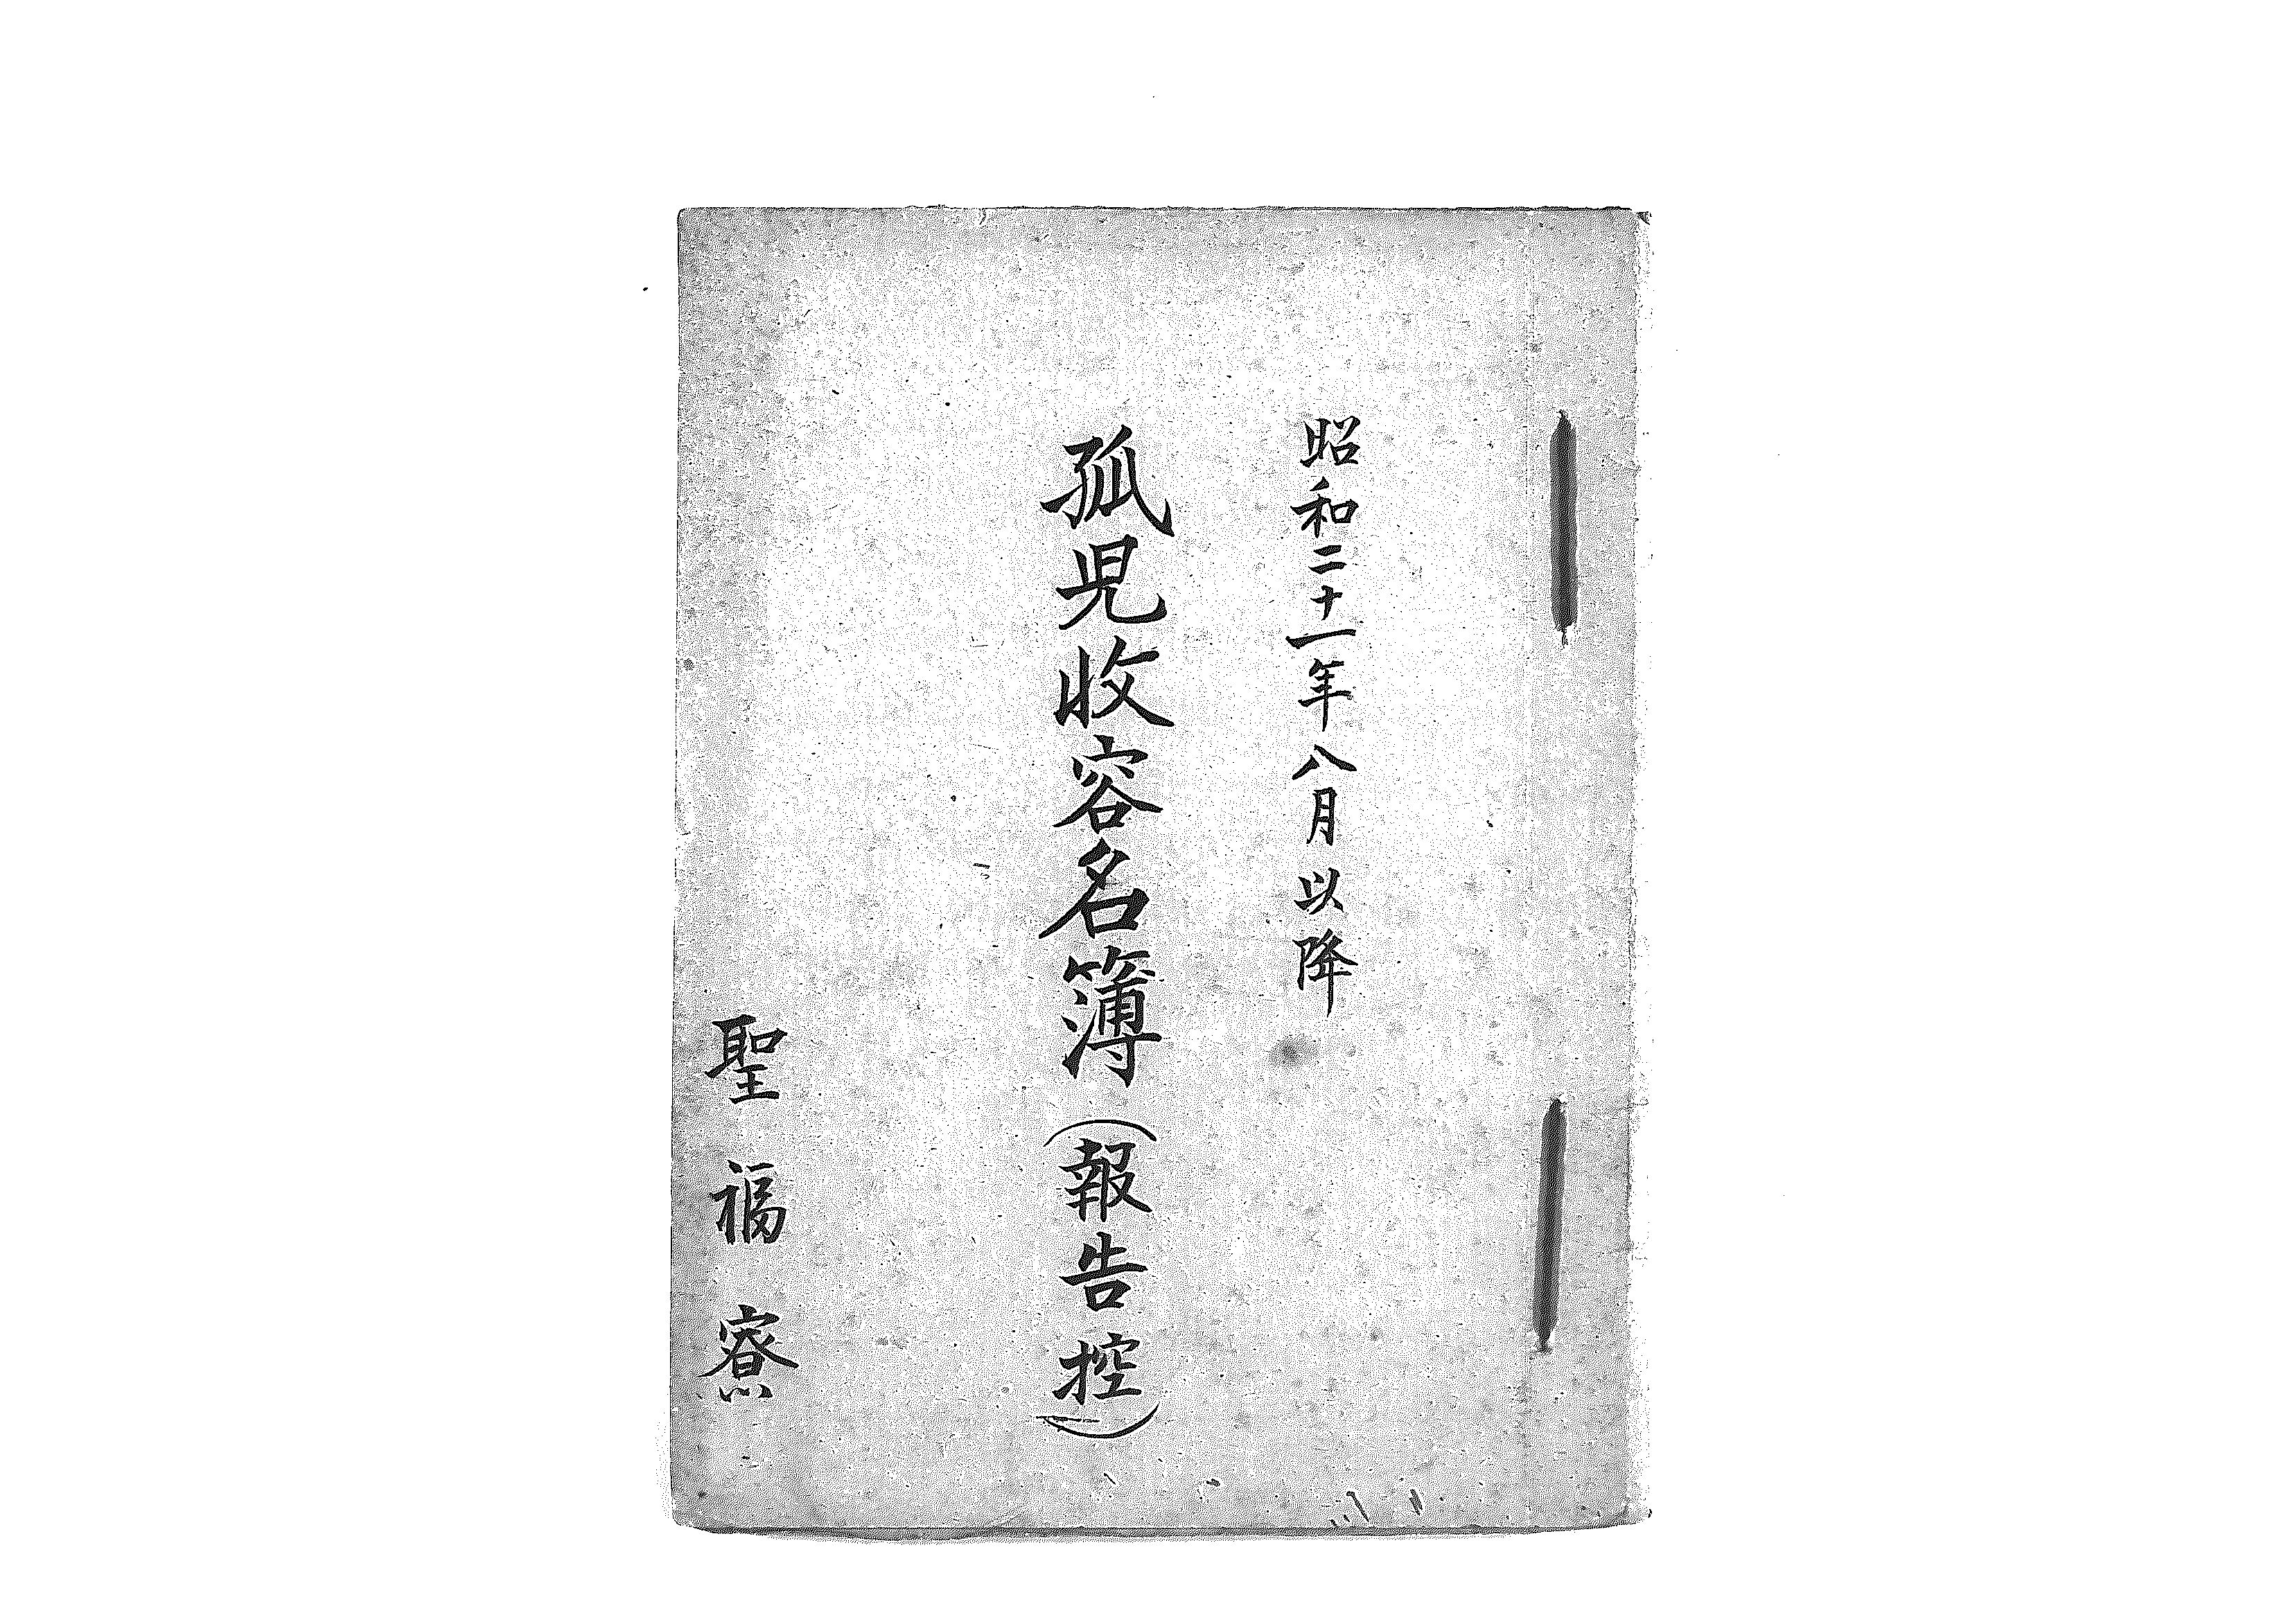 昭和二十一年八月以降
孤児收容名簿(報告控)
聖福寮